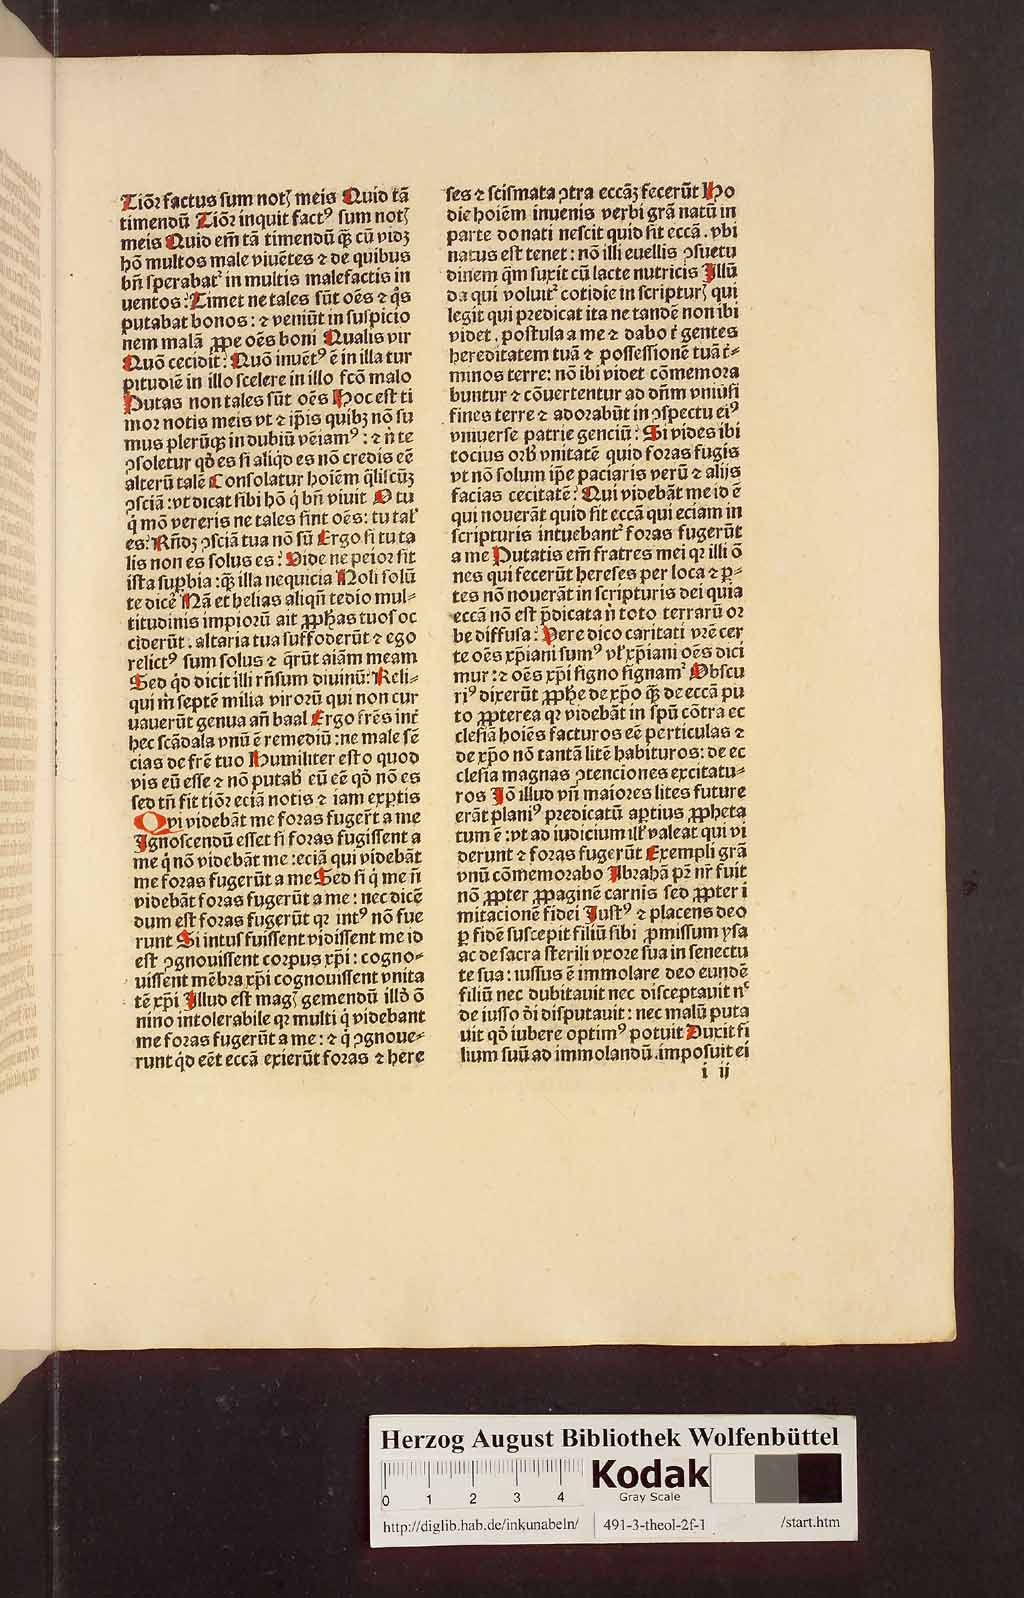 Tiōr factus sum notꝭ meis Quid tā
timendū Tiōr inquit factꝰ sum notꝭ
meis Quid em̄ tā timendū qȝ cū videȝ
hōs multos male viuētes ⁊ de quibus
bn̄ sperabat᷑ in multis malefactis in
uentos: Timet ne tales sūt oēs ⁊ q̄s
putabat bonos: ⁊ veniūt in suspicio
nem malā ꝓpe oēs boni Qualis vir
Quō cecidit: Quō inuētꝰ ē in illa tur
pitudiē in illo scelere in illo fcō malo
Putas non tales sūt oēs Hoc est ti
mor notis meis vt ⁊ ip̄is quibȝ nō su
mus plerūqȝ in dubiū vēiamꝰ: ⁊ n̄ te
ꝯsoletur qđ es si aliqđ es nō credis eē
alterū talē Consolatur hoiēm q̄liscūȝ
ꝯsciā: vt dicat sibi hō q̇ bn̄ viuit O tu
q̇ mō vereris ne tales sint oēs: tu tal̄
es: Rn̄dȝ ꝯsciā tua nō sū Ergo si tu ta
lis non es solus es: Vide ne peior sit
ista supbia: qȝ illa nequicia Noli solū
te dicē Nā et helias aliqn̄ tedio mul⸗
titudinis impiorū ait ꝓphas tuos oc
ciderūt. altaria tua suffoderūt ⁊ ego
relictꝰ sum solus ⁊ q̄rūt aīam meam
Sed qđ dicit illi rn̄sum diuinū: Reli⸗
qui m̄ septē milia virorū qui non cur
uauerūt genua an̄ baal Ergo frēs int̄
hec scādala vnū ē remediū: ne male sē
cias de frē tuo Humiliter esto quod
vis eū esse ⁊ nō putab̄ eū eē qđ nō es
sed tn̄ fit tiōr eciā notis ⁊ iam exptis
Qvi videbāt me foras fuger̄t a me
Ignoscendū esset si foras fugissent a
me q̇ nō videbāt me: eciā qui videbāt
me foras fugerūt a me Sed si q̇ me n̄
videbāt foras fugerūt a me: nec dicē
dum est foras fugerūt qꝛ intꝰ nō fue
runt Si intus fuissent vidissent me id
est ꝯgnouissent corpus xp̄i: cogno⸗
uissent mēbra xp̄i cognouissent vnita
tē xp̄i Illud est magꝭ gemendū illđ ō
nino intolerabile qꝛ multi q̇ videbant
me foras fugerūt a me: ⁊ q̇ ꝯgnoue⸗
runt qđ eēt eccā exierūt foras ⁊ here
ses ⁊ scismata ꝯtra eccāȝ fecerūt Ho
die hoiēm inuenis verbi grā natū in
parte donati nescit quid sit eccā. vbi
natus est tenet: nō illi euellis ꝯsuetu
dinem q̄m suxit cū lacte nutricis Illū
da qui voluit᷑ cotidie in scripturꝭ qui
legit qui predicat ita ne tandē non ibi
videt. postula a me ⁊ dabo t̄ gentes
hereditatem tuā ⁊ possessionē tuā t̄⸗
minos terre: nō ibi videt cōmemora
buntur ⁊ cōuertentur ad dn̄m vniūsi
fines terre ⁊ adorabūt in ꝯspectu eiꝰ
vniuerse patrie genciū: Si vides ibi
tocius orb̄ vnitatē quid foras fugis
vt nō solum ip̄e paciaris verū ⁊ alijs
facias cecitatē: Qui videbāt me id ē
qui nouerāt quid sit eccā qui eciam in
scripturis intuebant᷑ foras fugerūt
a me Putatis em̄ fratres mei qꝛ illi ō
nes qui fecerūt hereses per loca ⁊ ꝑ⸗
tes nō nouerāt in scripturis dei quia
eccā nō est p̄dicata n̄ toto terrarū or
be diffusa: Vere dico caritati vrē cer
te oēs xp̄iani sumꝰ vl̄ xp̄iani oēs dici
mur: ⁊ oēs xp̄i signo signam᷑ Obscu
riꝰ dixerūt ꝓphe de xp̄o qȝ de eccā pu
to ꝓpterea qꝛ videbāt in spū cōtra ec
clesiā hoiēs facturos eē perticulas ⁊
de xp̄o nō tantā litē habituros: de ec
clesia magnas ꝯtenciones excitatu⸗
ros Iō illud vn̄ maiores lites future
erāt planiꝰ predicatū aptius ꝓpheta
tum ē: vt ad iudicium ill̄ valeat qui vi
derunt ⁊ foras fugerūt Exempli grā
vnū cōmemorabo Abrahā pr̄ nr̄ fuit
nō ꝓpter ꝓpaginē carnis sed ꝓpter i
mitacionē fidei Iustꝰ ⁊ placens deo
ꝑ fidē suscepit filiū sibi ꝓmissum ysa
ac de sacra sterili vxore sua in senectu
te sua: iussus ē immolare deo eundē
filiū nec dubitauit nec disceptauit nͨ
de iusso di disputauit: nec malū puta
uit qđ iubere optimꝰ potuit Duxit fi
lium suū ad immolandū. imposuit ei
i ij
Herzog August Bibliothek Wolfenbüttel
0 1 2 3 4
Kodak
Gray Scale
http://diglib.hab.de/inkunabeln/ 491-3-theol-2f-1 /start.htm